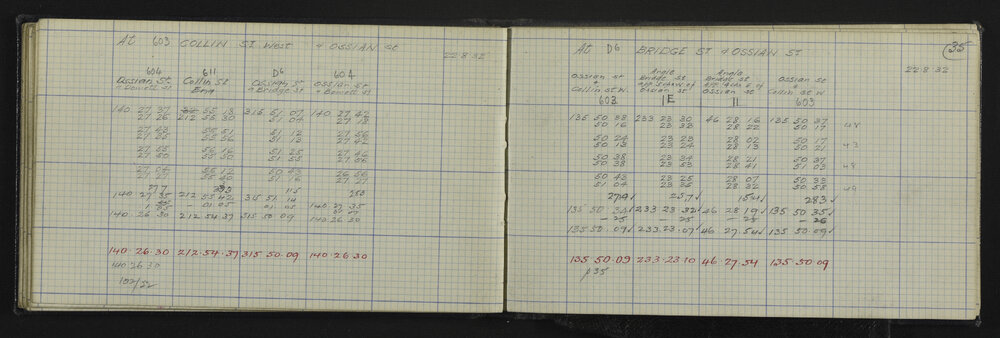 At 603 COLLIN ST West & OSSIAN St
22·8·32
604 611 D6 604
Ossian St Collin St Ossian St Ossian St
& Barrett St End & Bridge St & Barrett St
140 27 37 55 18 315 51 07 140 27 42
27 26 212 55 30 51 04 27 18
27 43 55 51 51 12 27 56
27 25 55 56 51 13 27 42
27 55 56 16 51 25 27 42
27 50 55 50 51 55 27 56
27 04 55 12 50 43 26 56
27 21 55 40 51 16 27 21
140 27 35 212 55 42 315 51 14
- 01 05 140 27 35
140 26 30 212 54 37 315 50 09 140 26 30
140·26·30 212·54·37 315 50·09 140·26·30
140 26 30
102/22
35
At D6 BRIDGE ST & OSSIAN ST
22·8·32
Ossian St Angle Angle Ossian St
+ Bridge St Bridge St &
Collin St W. Ossian St Ossian St Collin St W
603 1E 11 603
135 50 38 233 23 30 46 28 16 135 50 37
50 16 23 38 28 22 50 17
50 24 23 23 28 02 50 17
50 13 23 24 28 13 50 21 43
50 38 23 34 28 21 50 37
50 38 23 53 28 41 51 03
50 43 23 25 28 07 50 33
51 04 23 35 28 32 50 58
257 283
135 50 34 233 23 32 46 28 19 135 50 35
- 25 - 25 - 25 - 26
135 50 09 233·23·07 46 27 54 135 50·09
135 50·09 233·23·10 46·27·54 135·50·09
p35